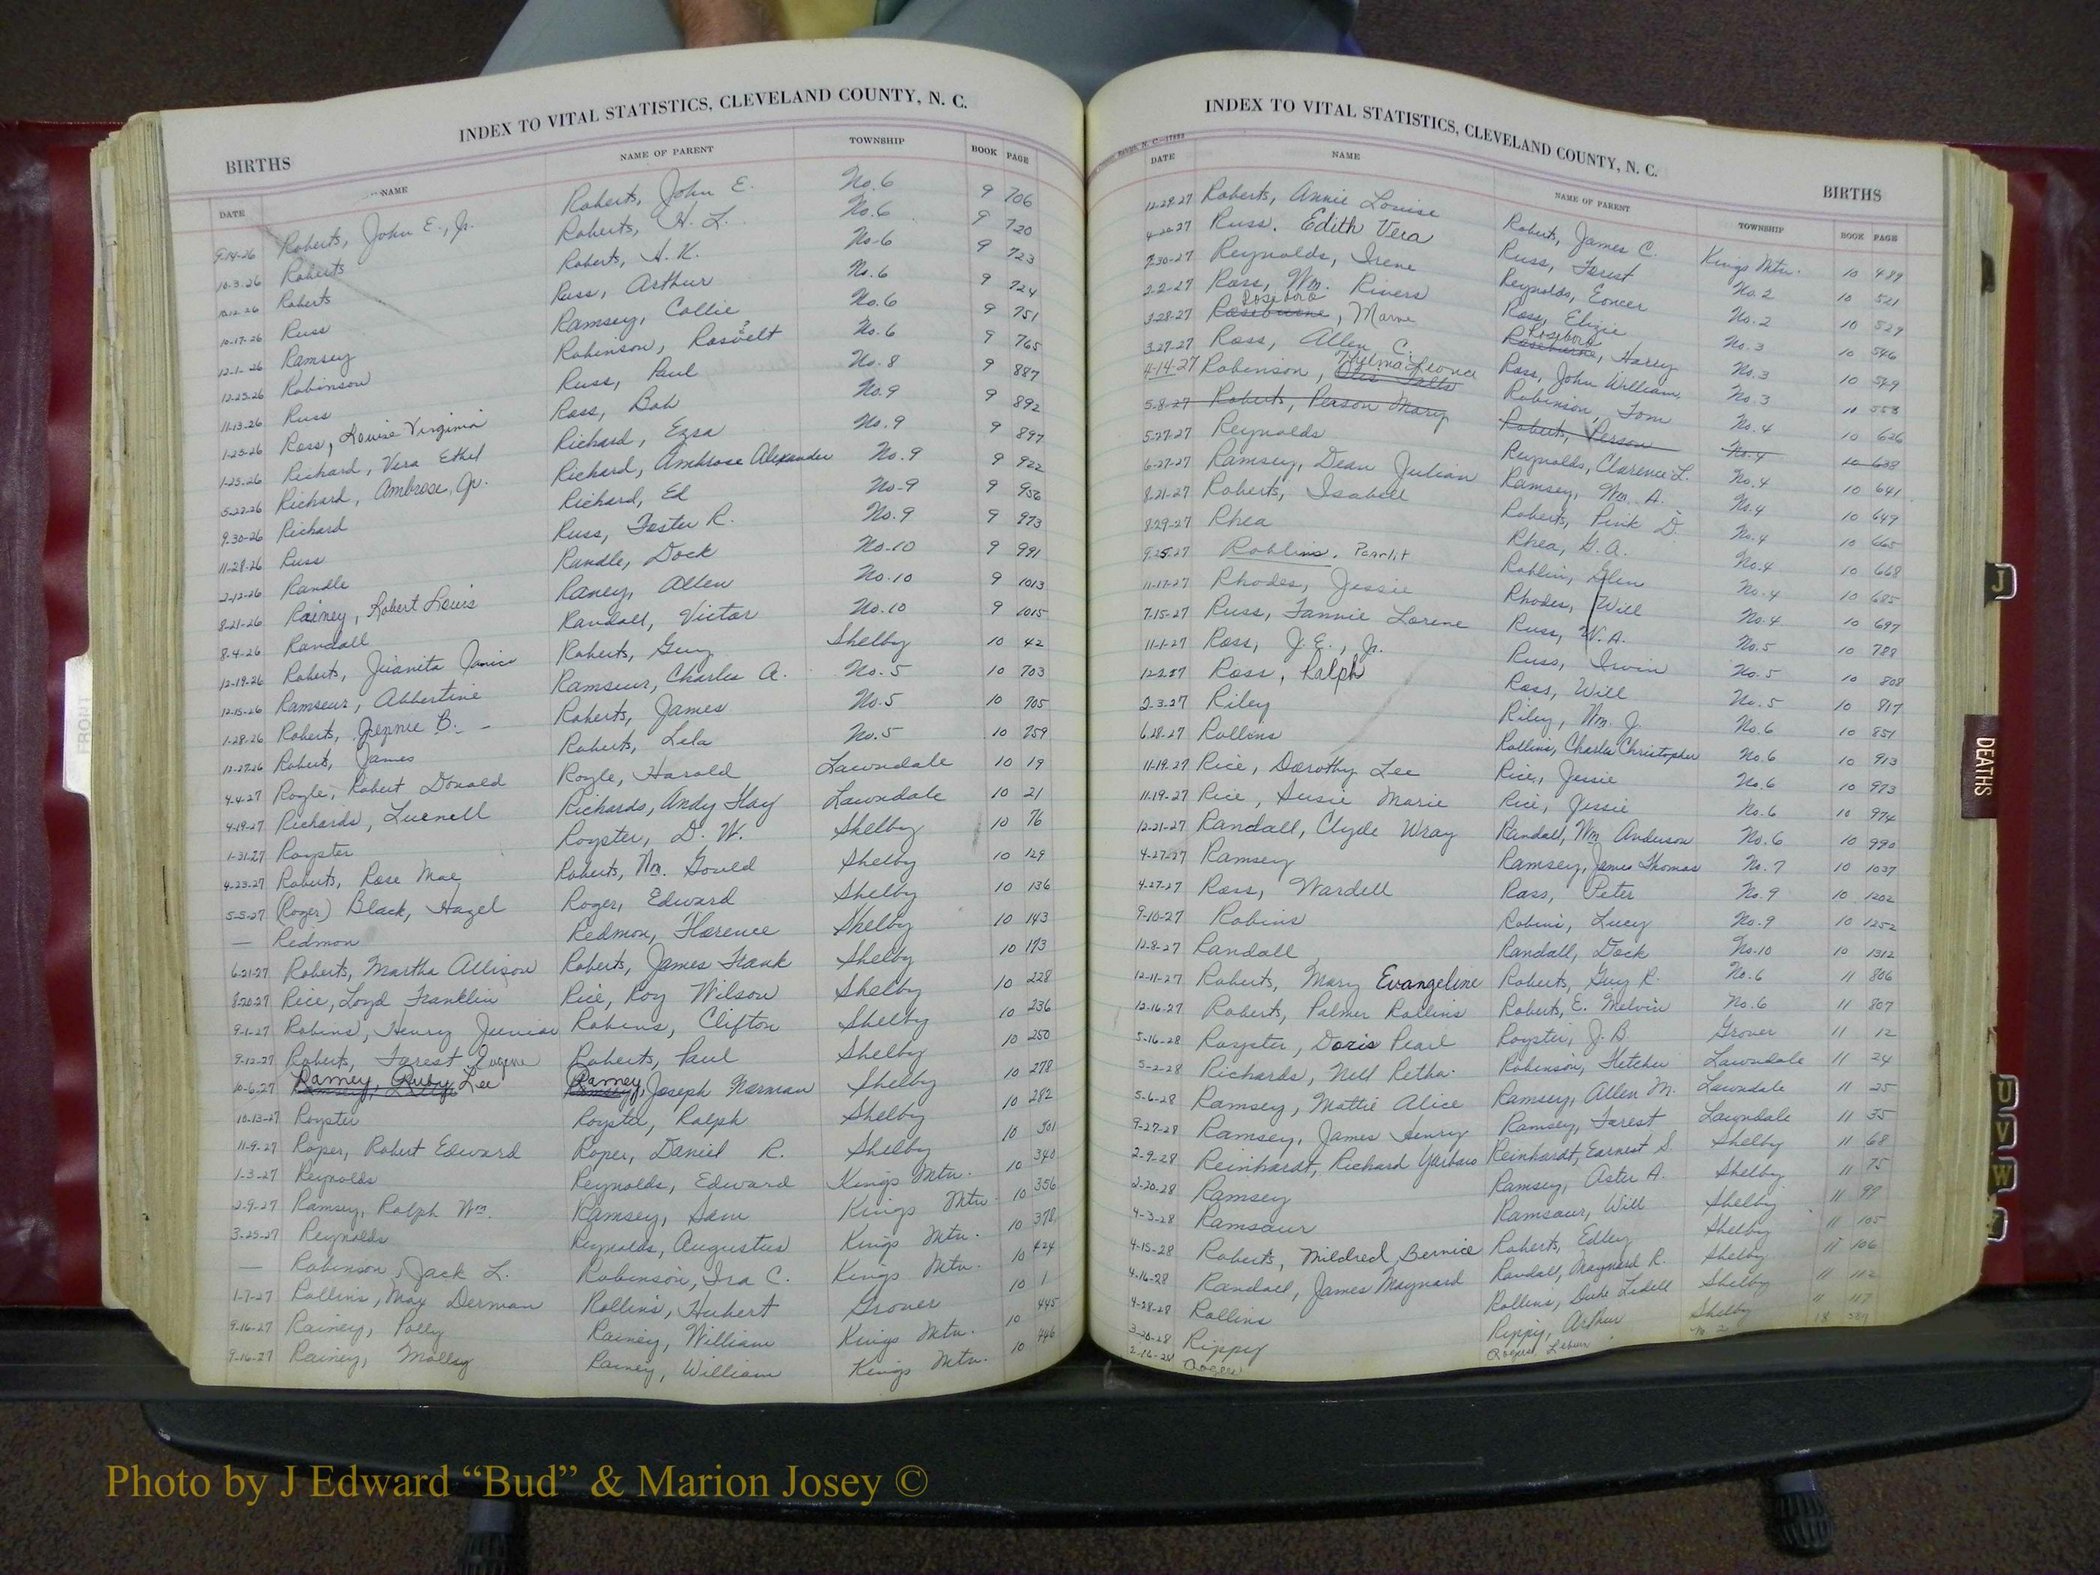 INDEX TO VITAL STATISTICS, CLEVELAND COUNTY, N. C.
BIRTHS
DATE NAME NAME OF PARENT TOWNSHIP BOOK PAGE
9-14-26 Roberts, John E., Jr. Roberts, John E. No. 6 9 706
10-3-26 Roberts Roberts, H. L. No. 6 9 720
10-12-26 Roberts Roberts, H. K. No. 6 9 723
10-17-26 Russ Russ, Arthur No. 6 9 724
12-1-26 Ramsey Ramsey, Collie No. 6 9 751
12-25-26 Robinson Robinson, Rosvelt No. 6 9 765
11-13-26 Russ Russ, Paul No. 8 9 887
1-25-26 Ross, Louise Virginia Ross, Bob No. 9 9 892
1-25-26 Richard, Vera Ethel Richard, Ezra No. 9 9 897
5-22-26 Richard, Ambrose, Jr. Richard, Ambrose Alexander No. 9 9 922
9-30-26 Richard Richard, Ed No. 9 9 956
11-28-26 Russ Russ, Foster R. No. 9 9 973
2-12-26 Randle Randle, Dock No. 10 9 991
8-21-26 Rainey, Robert Louis Raney, Allen No. 10 9 1013
8-4-26 Randall Randall, Victor No. 10 9 1015
12-19-26 Roberts, Juanita Janice Roberts, Guy Shelby 10 42
12-15-26 Ramseur, Abbertine Ramseur, Charles A. No. 5 10 703
1-28-26 Roberts, Jennie B. Roberts, James No. 5 10 705
12-27-26 Roberts, James Roberts, Lela No. 5 10 759
4-4-27 Royle, Robert Donald Royle, Harold Lawndale 10 19
4-19-27 Richards, Luenell Richards, Andy Hay Lawndale 10 21
1-31-27 Royster Royster, D. W. Shelby 10 76
4-23-27 Roberts, Rose Mae Roberts, Wm. Gould Shelby 10 129
5-5-27 (Roger) Black, Hazel Roger, Edward Shelby 10 136
— Redmon Redmon, Florence Shelby 10 143
6-21-27 Roberts, Martha Allison Roberts, James Frank Shelby 10 173
8-20-27 Rice, Loyd Franklin Rice, Roy Wilson Shelby 10 228
9-1-27 Robins, Henry Junior Robins, Clifton Shelby 10 236
9-12-27 Roberts, Forest Eugene Roberts, Paul Shelby 10 250
10-6-27 Ramey, Ruby Lee Ramey, Joseph Norman Shelby 10 278
10-13-27 Royster Royster, Ralph Shelby 10 282
11-9-27 Roper, Robert Edward Roper, Daniel R. Shelby 10 301
1-3-27 Reynolds Reynolds, Edward Kings Mtn. 10 340
2-9-27 Ramsey, Ralph Wm. Ramsey, Sam Kings Mtn. 10 356
3-25-27 Reynolds Reynolds, Augustus Kings Mtn. 10 378
— Robinson, Jack L. Robinson, Ira C. Kings Mtn. 10 424
1-7-27 Rollins, Max Derman Rollins, Hubert Grover 10 1
9-16-27 Rainey, Polly Rainey, William Kings Mtn. 10 445
9-16-27 Rainey, Molley Rainey, William Kings Mtn. 10 446
INDEX TO VITAL STATISTICS, CLEVELAND COUNTY, N. C.
BIRTHS
DATE NAME NAME OF PARENT TOWNSHIP BOOK PAGE
12-29-27 Roberts, Annie Louise Roberts, James C. Kings Mtn. 10 489
4-20-27 Russ, Edith Vera Russ, Forest No. 2 10 521
7-30-27 Reynolds, Irene Reynolds, Eoncer No. 2 10 529
2-2-27 Ross, Wm. Rivers Ross, Elizie No. 3 10 546
3-28-27 Roseboro, Marve Roseboro, Harry No. 3 10 549
3-27-27 Ross, Allen C. Ross, John William No. 3 10 553
4-14-27 Robinson, Thelma Leonce Robinson, Tom No. 4 10 626
5-8-27 Roberts, Person Mary Roberts, Person No. 4 10 638
5-27-27 Reynolds Reynolds, Clarence L. No. 4 10 641
6-27-27 Ramsey, Dean Julian Ramsey, Wm. A. No. 4 10 649
8-21-27 Roberts, Isabell Roberts, Pink D. No. 4 10 665
8-29-27 Rhea Rhea, G. A. No. 4 10 668
9-25-27 Roblins, Pearlit Roblin, Glen No. 4 10 685
11-17-27 Rhodes, Jessie Rhodes, Will No. 4 10 697
7-15-27 Russ, Fannie Lorene Russ, W. A. No. 5 10 788
11-1-27 Ross, J. E., Jr. Russ, Irvin No. 5 10 808
12-2-27 Ross, Ralph Ross, Will No. 5 10 817
2-3-27 Riley Riley, Wm. J. No. 6 10 851
6-28-27 Rollins Rollins, Charles Christopher No. 6 10 913
11-19-27 Rice, Dorothy Lee Rice, Jessie No. 6 10 973
11-19-27 Rice, Susie Marie Rice, Jessie No. 6 10 974
12-21-27 Randall, Clyde Wray Randall, Wm. Anderson No. 6 10 990
4-27-27 Ramsey Ramsey, James Thomas No. 7 10 1037
4-27-27 Ross, Wardell Ross, Peter No. 9 10 1202
9-10-27 Robins Robins, Lucy No. 9 10 1252
12-8-27 Randall Randall, Dock No. 10 10 1312
12-11-27 Roberts, Mary Evangeline Roberts, Guy R. No. 6 11 806
12-16-27 Roberts, Palmer Rollins Roberts, E. Melvin No. 6 11 807
5-16-28 Royster, Doris Pearl Royster, J. B Grover 11 12
5-2-28 Richards, Nell Retha Robinson, Fletcher Lawndale 11 24
5-6-28 Ramsey, Mattie Alice Ramsey, Allen M. Lawndale 11 25
9-27-28 Ramsey, James Henry Ramsey, Forest Lawndale 11 35
2-9-28 Reinhardt, Richard Yarboro Reinhardt, Earnest S. Shelby 11 68
2-20-28 Ramsey Ramsey, Aster A. Shelby 11 75
4-3-28 Ramsaur Ramsaur, Will Shelby 11 97
4-15-28 Roberts, Mildred Bernice Roberts, Edley Shelby 11 105
4-16-28 Randall, James Maynard Randall, Maynard R. Shelby 11 106
4-28-28 Rollins Rollins, Duke Lidell Shelby 11 112
3-20-28 Rippy Rippy, Arthur Shelby 11 117
2-16-28 No 2 18
FRONT
J
DEATHS
U
V
W
Photo by J Edward “Bud” & Marion Josey ©